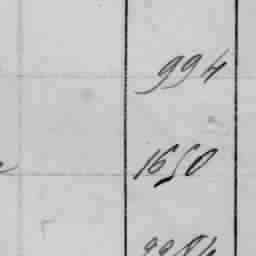 994
1650